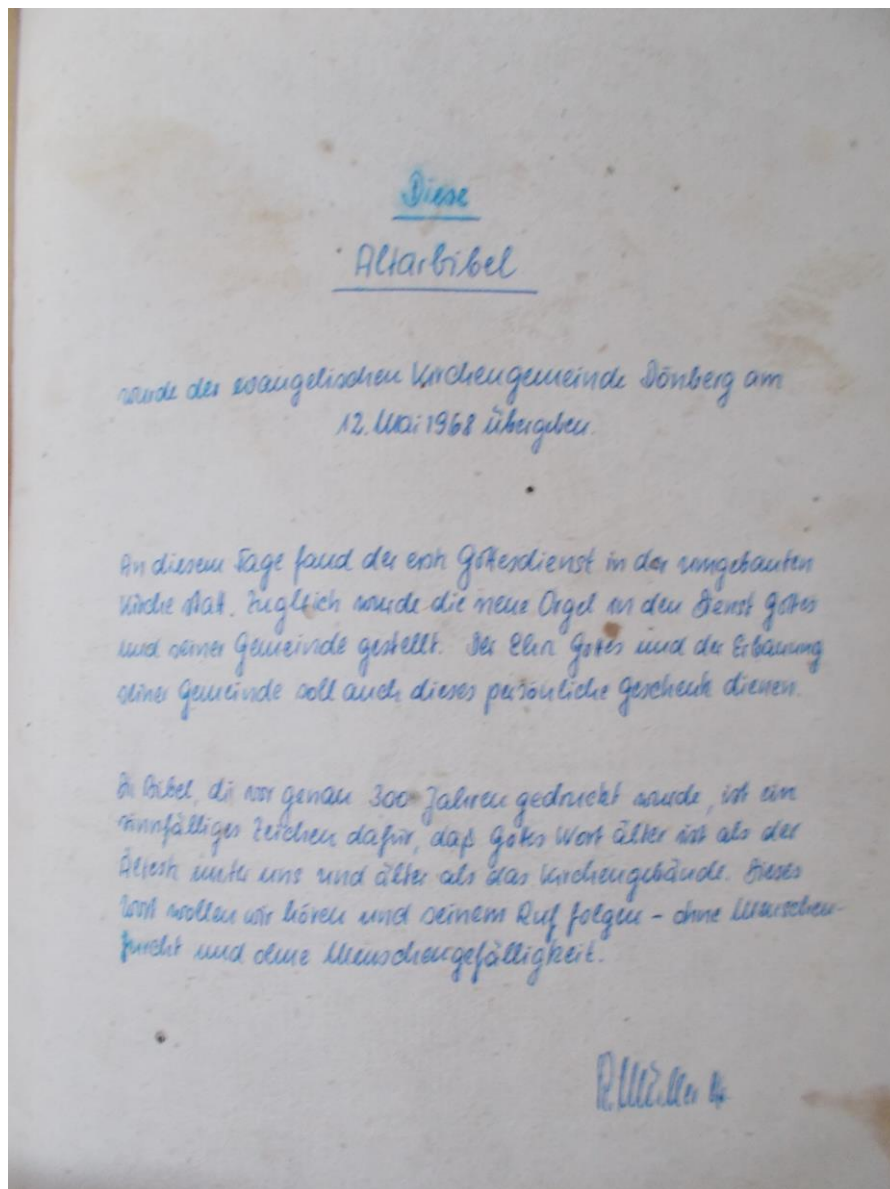 Diese
Altarbibel
wurde der evangelischen Kirchengemeinde Dönberg am
12. Mai 1968 übergeben.
An diesem Tage fand der erste Gottesdienst in der umgebauten
Kirche statt. Zugleich wurde die neue Orgel in den Dienst Gottes
und seiner Gemeinde gestellt. Der Ehre Gottes und der Erbauung
seiner Gemeinde soll auch dieses persönliche Geschenk dienen.
Die Bibel, die vor genau 300 Jahren gedruckt wurde, ist ein
sinnfälliges Zeichen dafür, daß Gottes Wort älter ist als der
Älteste unter uns und älter als das Kirchengebäude. Dieses
Wort wollen wir hören und seinem Ruf folgen - ohne Menschen-
furcht und ohne Menschengefälligkeit.
R. Müller